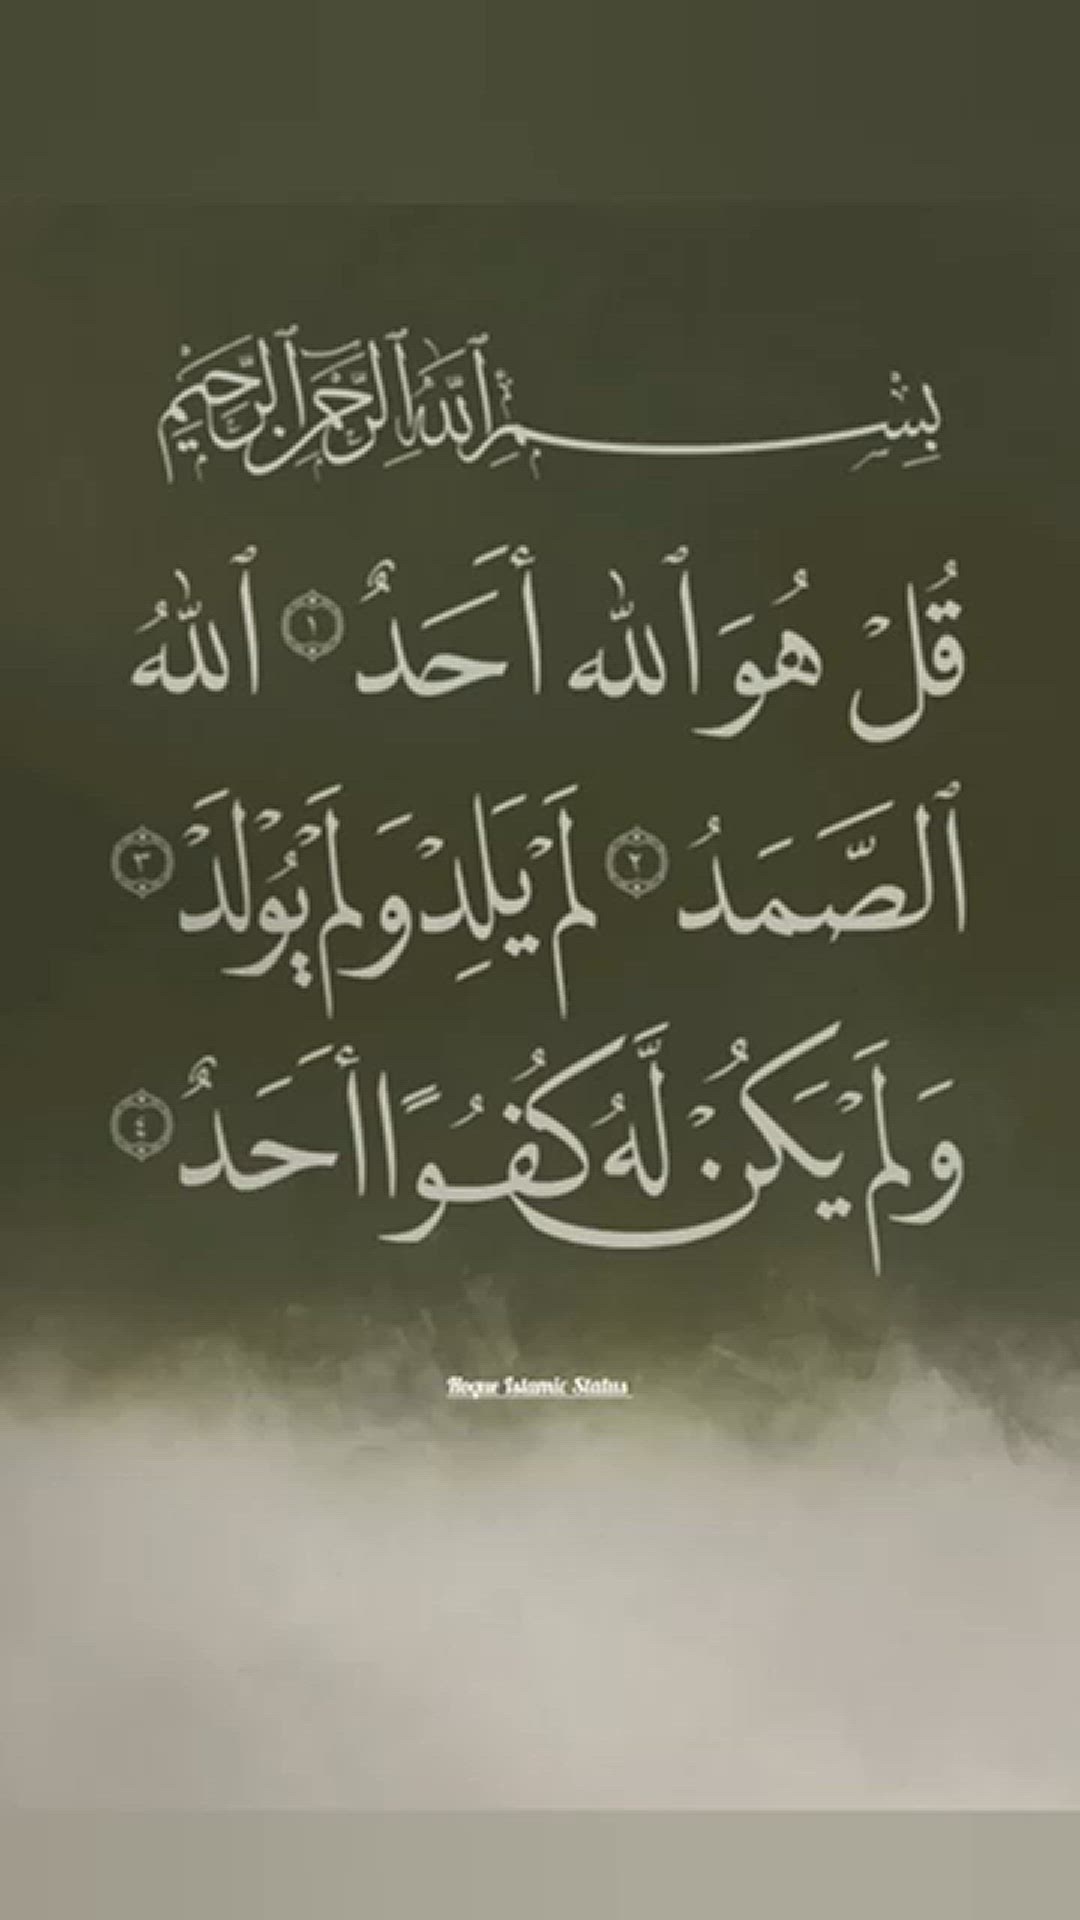 بِسْمِ ٱللَّهِ ٱلرَّحْمَٰنِ ٱلرَّحِيمِ
قُلْ هُوَ ٱللَّه أَحَدٌ ١ ٱللَّهُ
ٱلصَّمَدُ ٢ لَمْ يَلِدْ وَلَمْ يُولَدْ ٣
وَلَمْ يَكُنْ لَّهُ كُفُوًا أَحَدٌ ٤
Islamic Status